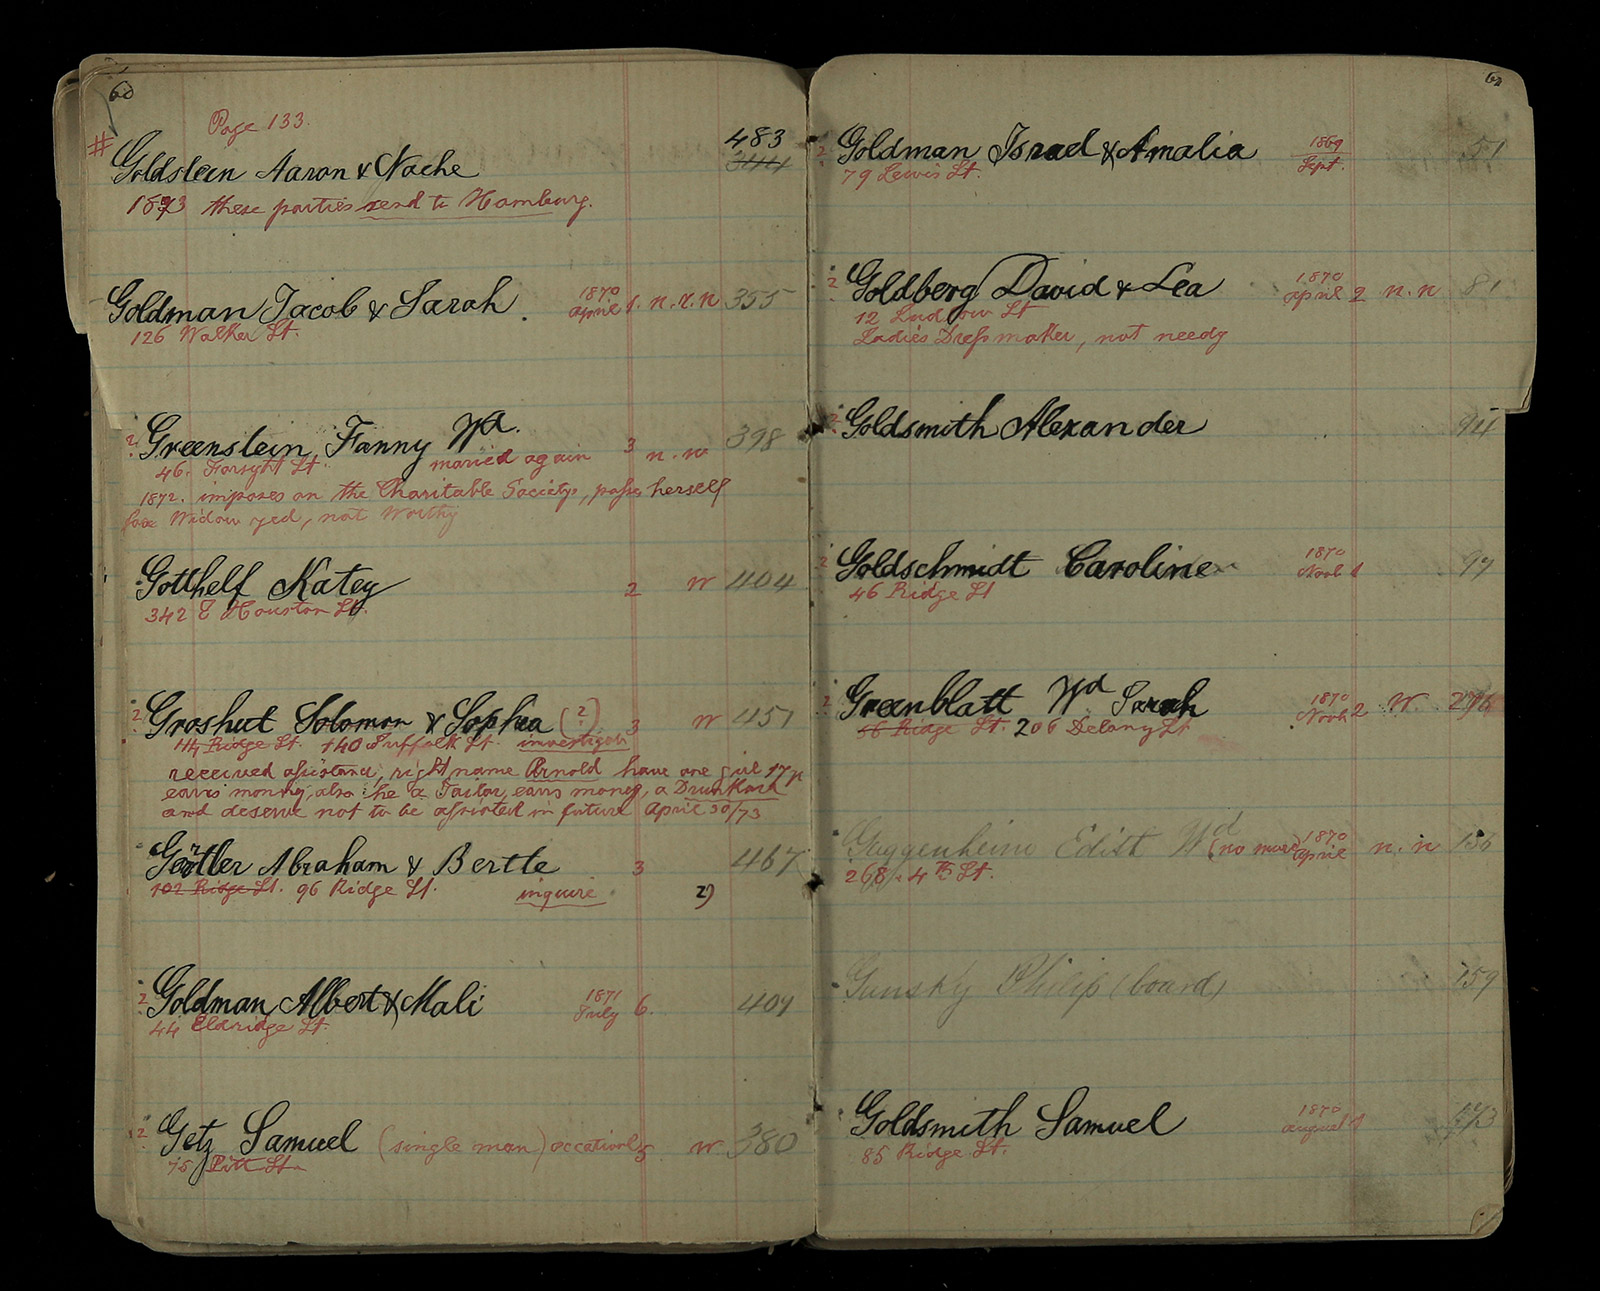 60
Page 133.
# 483
Goldstein Aaron & Nache 344
1873 these parties send to Hamburg.
Goldman Jacob & Sarah. 1870 april 1. n. r. n 355
126 Walker St.
2 Greenstein, Fanny Wd. 3 n. n 398
46. Forsyht St. maried again
1872. imposes on the Charitable Society, passes herself
for Widow yed, not Worthy
Gotthelf Katey 2 n 404
342 E Houston St.
2 Groshut Solomon & Sophia (2) 3 n 451
44 Ridge St. 140 Suffolk St. investigate
received assistance, right name Arnold have one girl 17 y
earns money, also he a Tailor, earns money, a Drunkard
and deserve not to be assisted in future April 30/73
Görtler Abraham & Bertle 3 467
102 Ridge St. 96 Ridge St. inquire 2)
2 Goldman Albert & Mali 1871 July 6. 407
44 Eldridge St.
2 Getz Samuel (single man) occationly 5 n 380
75 Pitt St.
2 Goldman Israel & Amalia 1869 Sept. 51
79 Lewis St.
2 Goldberg David & Lea 1870 april 2 n. n 81
12 Ludlow St
Ladies Dressmaker, not needy
2 Goldsmith Alexander 94
2 Goldschmidt Caroline 1870 Novb 1 97
46 Ridge St
2 Greenblatt Wd Sarah 1870 Novb 2 n. 276
56 Ridge St. 206 Delancy St
Guggenheim Edith Wd (no more) 1870 april n. n 156
268. 4th St.
Gunsky Philip (board) 159
Goldsmith Samuel 1870 august 1 173
85 Ridge St.